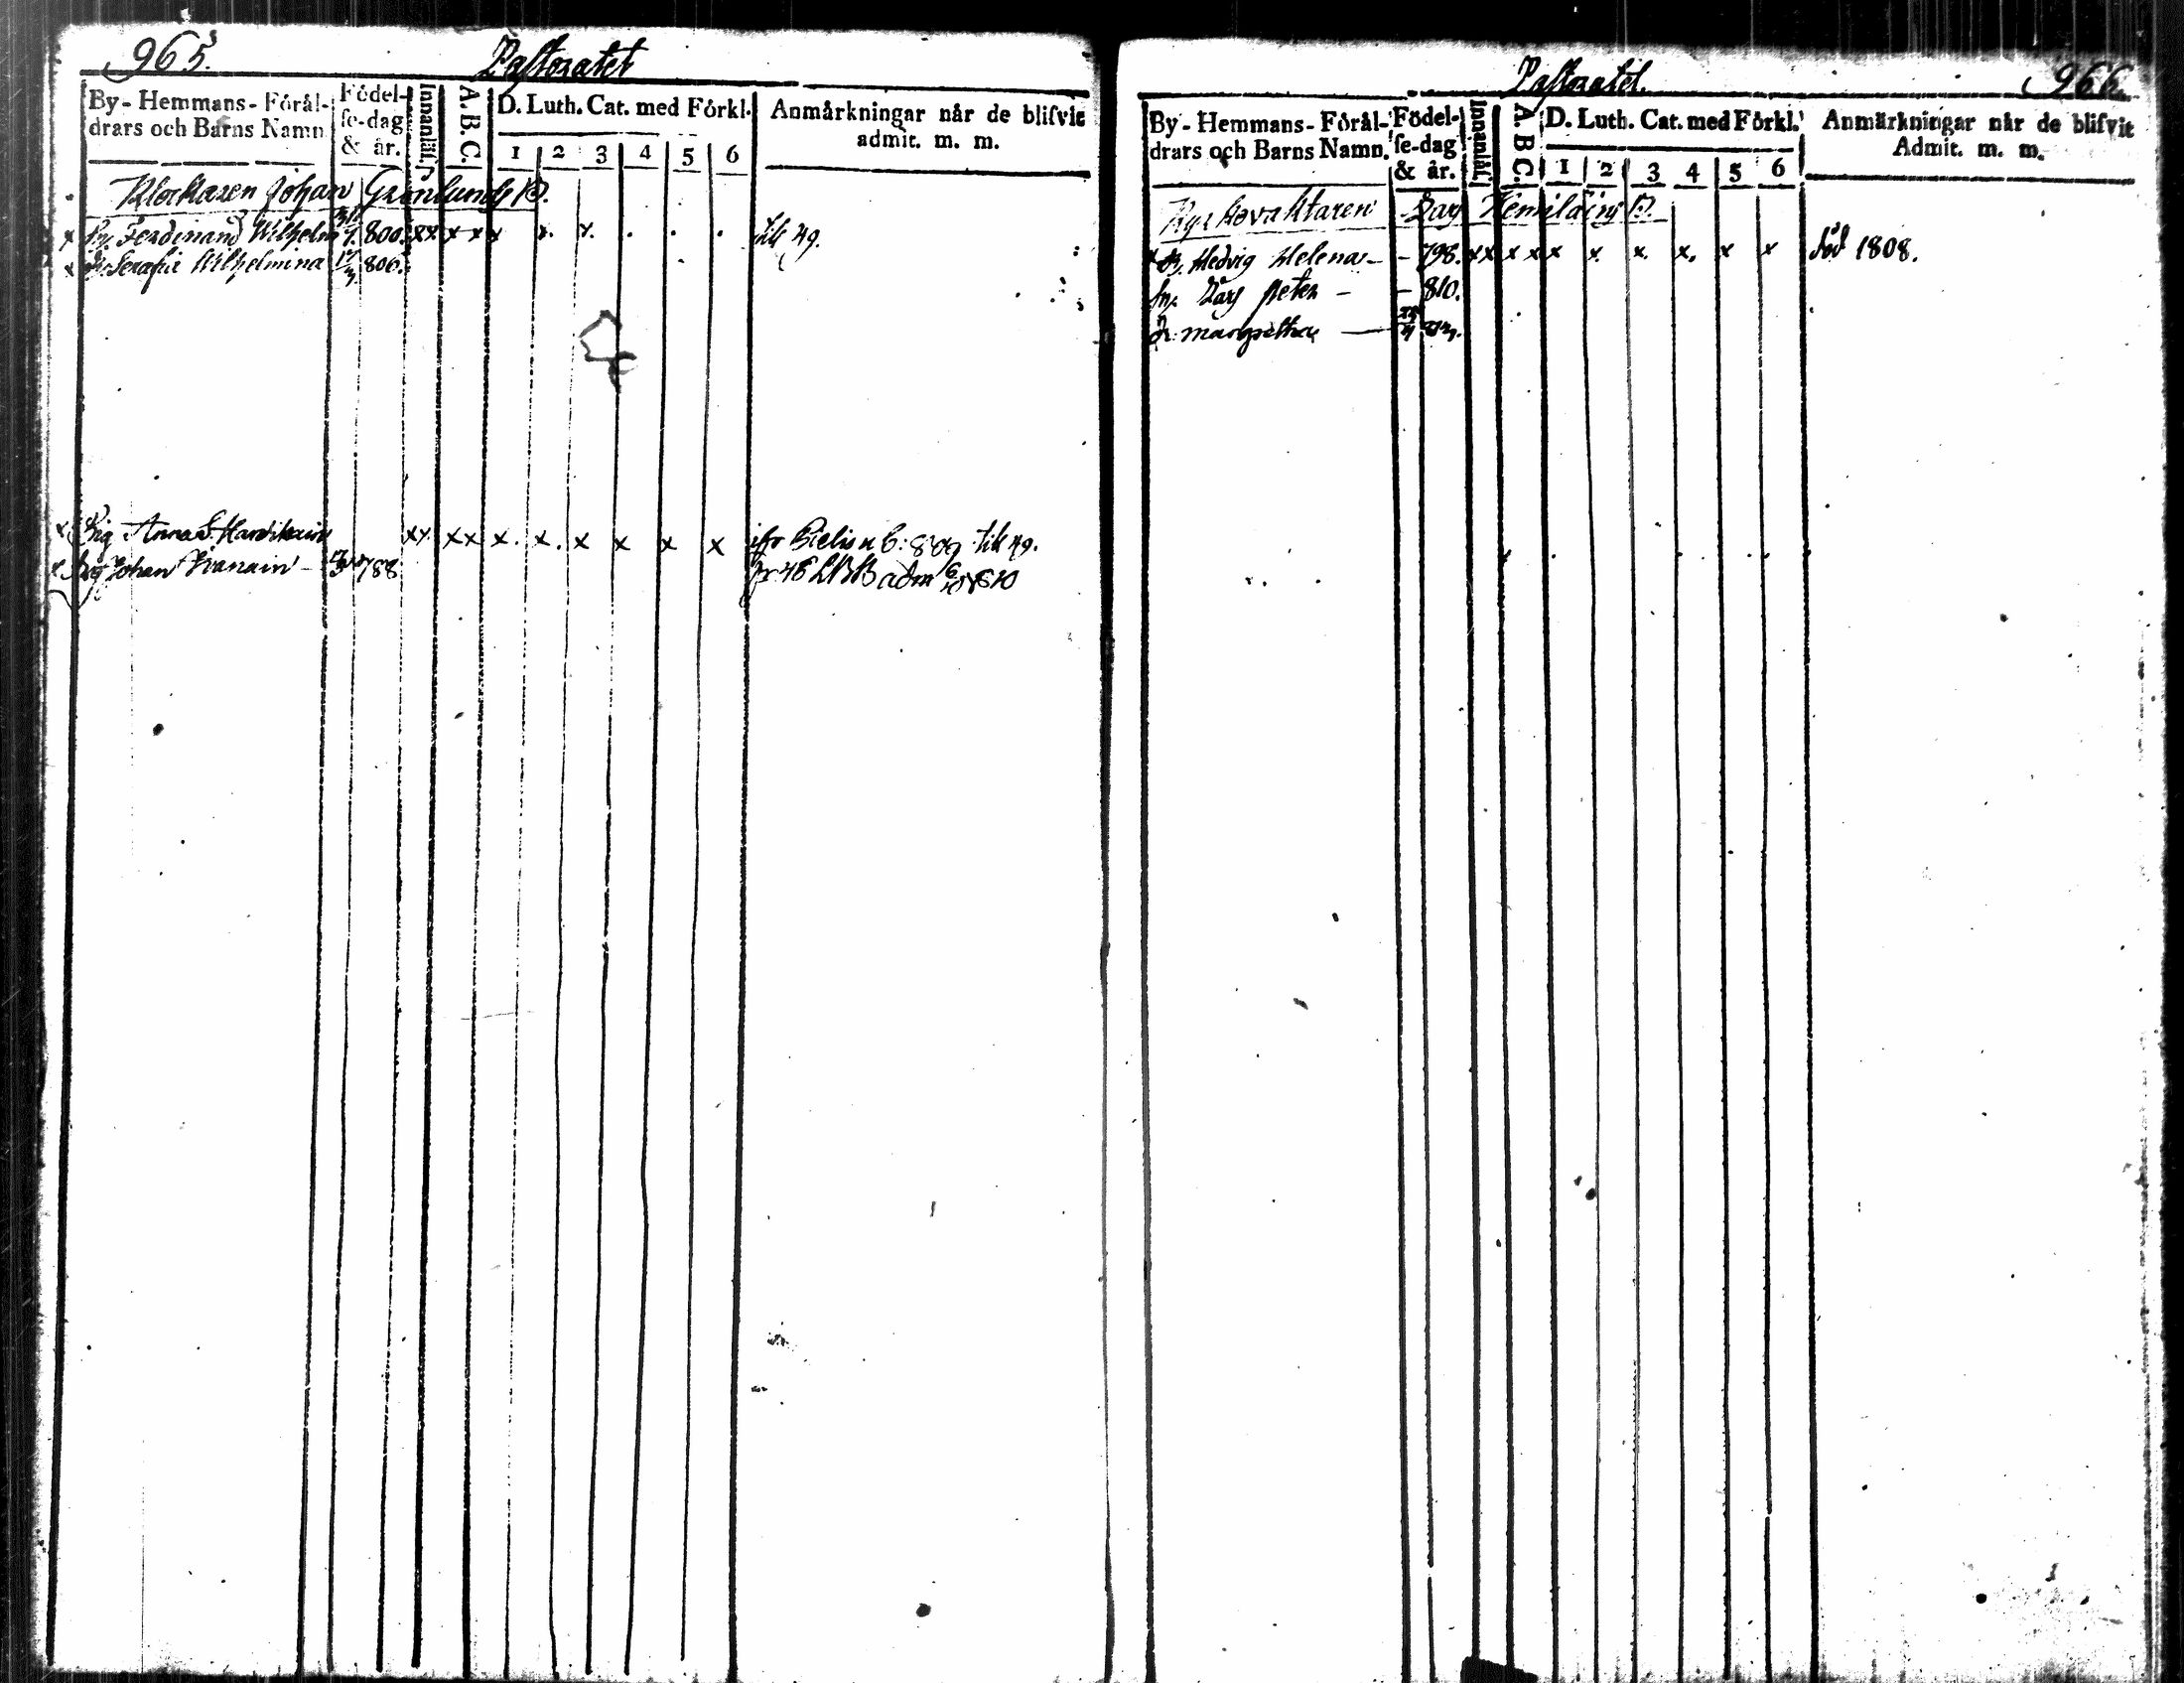 965.
Pastoratet
By - Hemmans - Förål-
drars och Barns Namn
Födel-
se-dag
& år.
Innanläs.
A. B. C.
D. Luth. Cat. med Förkl.
1 2 3 4 5 6
Anmärkningar når de blifvit
admit. m. m.
Klockaren Johan Grönlunds B.
x Ferdinand Wilhelm 800. x x x x x x. x. . . . till 49.
x Serafia Wilhelmina 17 806.
x Pig Anna S. x x x x x. x. x x x x 809 till 49.
x Johan 788 adm 6 1810
Pastoratet.
966.
By - Hemmans - Förål-
drars och Barns Namn.
Födel-
se-dag
& år.
Innanläs.
A. B C.
D. Luth. Cat. med Förkl.
1 2 3 4 5 6
Anmärkningar når de blifvit
Admit. m. m.
Kyrkovaktaren Lars B.
Hedvig Helena - - 798. x x x x x x. x. x. x x död 1808.
Lars Peter - - 810.
Margretha —